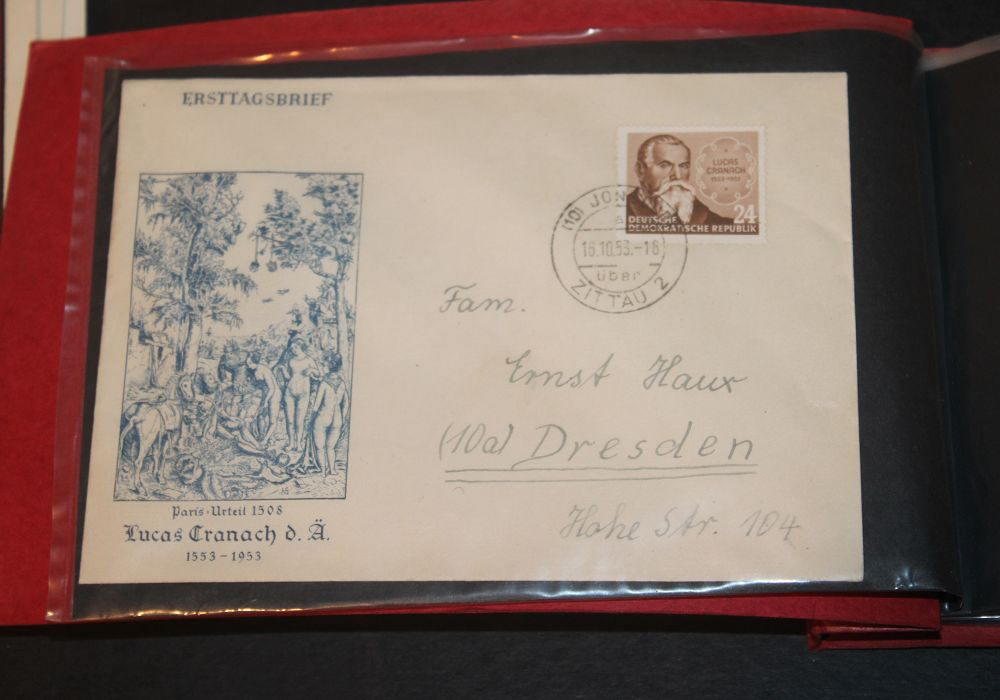 ERSTTAGSBRIEF
LUCAS
CRANACH
1553-1953
DEUTSCHE
DEMOKRATISCHE REPUBLIK
24
(10) JON
a
16.10.53.-18
über
ZITTAU 2
Fam.
Ernst Haux
(10a) Dresden
Hohe Str. 104
Paris-Urteil 1508
Lucas Cranach d. Ä.
1553-1953